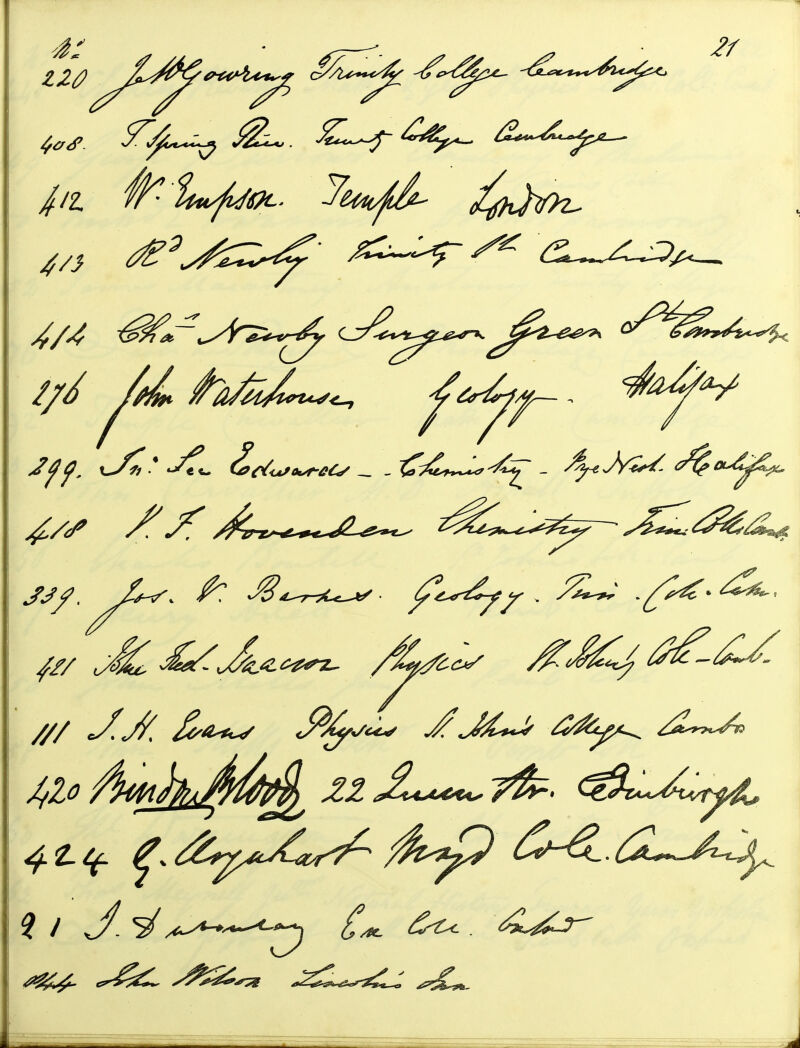 21
No
220 J. McGowring Trinity College Cambridge
408. T. Spring Rice. Trinity College Cambridge
412 W. Empson. Temple London
413 Rd Newby Trinity St Cambridge
414 Chas Newby Surgeon Green St Cambridge
276 John Waterhouse Geology. Halifax
299. Jn: Lee Edwards - Chemistry - Pye Nest. Halifax
418 V. F. Hovenden Chemistry Trin: Coll: Camb:
339. Jos. W. Barnes. Geology. Trin. Coll. Cam.
421 Fred. Isaacson Physics St. John's Coll - Camb.
111 J. H. Evans Physics St. John's College Camb
420 Bindon Blood 22 Queen Str. Edinburgh
424 Urquhart Magd Coll. Cambridge
21 J. Ex Coll. Oxford
John Wilson Lincoln's Inn